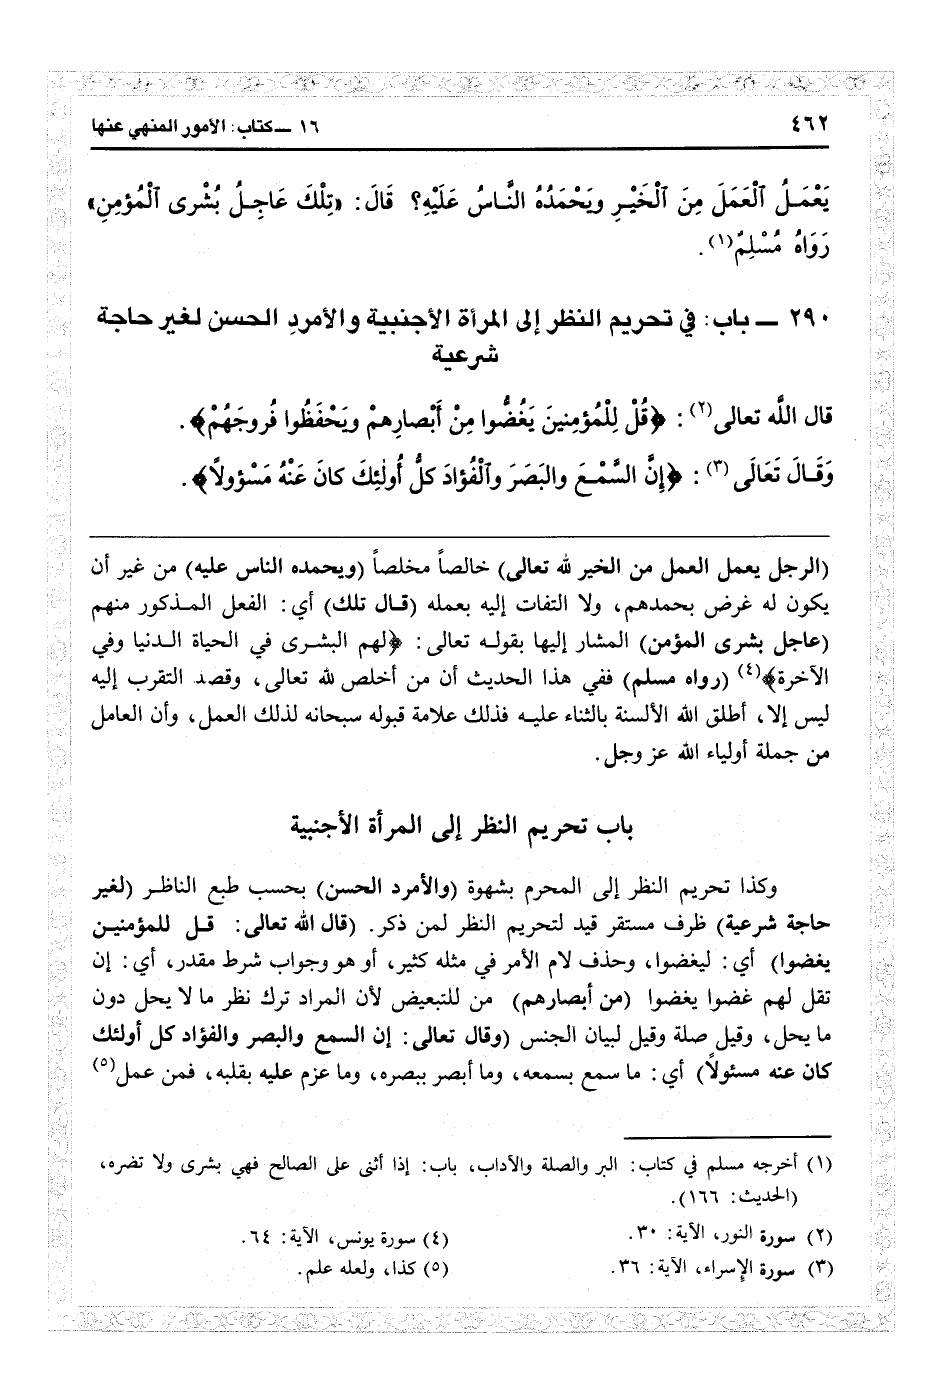 ٤٦٢
١٦ ــ كتاب: الأمور المنهي عنها
يَعْمَـلُ ٱلْعَمَلَ مِنَ ٱلْخَيْـرِ ويَحْمَدُهُ النَّاسُ عَلَيْهِ؟ قَالَ: «تِلْكَ عَاجِـلُ بُشْرى ٱلْمُؤمِنِ»
رَوَاهُ مُسْلِمٌ(١).
٢٩٠ ــ باب: في تحريم النظر إلى المرأة الأجنبية والأمردِ الحسن لغير حاجة
شرعية
قال اللَّه تعالى(٢): ﴿قُلْ لِلْمُؤمِنينَ يَغُضُّوا مِنْ أَبْصارِهِمْ ويَحْفَظُوا فُروجَهُمْ﴾.
وَقَـالَ تَعَالَى(٣): ﴿إِنَّ السَّمْـعَ والبَصَرَ وٱلْفُؤادَ كلُّ أُولٰئِكَ كانَ عَنْهُ مَسْؤولاً﴾.
(الرجل يعمل العمل من الخير لله تعالى) خالصاً مخلصاً (ويحمده الناس عليه) من غير أن
يكون له غرض بحمدهم، ولا التفات إليه بعمله (قـال تلك) أي: الفعل المـذكور منهم
(عاجل بشرى المؤمن) المشار إليها بقولـه تعالى: ﴿لهم البشـرى في الحياة الـدنيا وفي
الآخرة﴾(٤) (رواه مسلم) ففي هذا الحديث أن من أخلص لله تعالى، وقصد التقرب إليه
ليس إلا، أطلق الله الألسنة بالثناء عليـه فذلك علامة قبوله سبحانه لذلك العمل، وأن العامل
من جملة أولياء الله عز وجل.
باب تحريم النظر إلى المرأة الأجنبية
وكذا تحريم النظر إلى المحرم بشهوة (والأمرد الحسن) بحسب طبع الناظـر (لغير
حاجة شرعية) ظرف مستقر قيد لتحريم النظر لمن ذكر. (قال الله تعالى: قـل للمؤمنيـن
يغضوا) أي: ليغضوا، وحذف لام الأمر في مثله كثير، أو هو وجواب شرط مقدر، أي: إن
تقل لهم غضوا يغضوا (من أبصارهم) من للتبعيض لأن المراد ترك نظر ما لا يحل دون
ما يحل، وقيل صلة وقيل لبيان الجنس (وقال تعالى: إن السمع والبصر والفؤاد كل أولئك
كان عنه مسئولاً) أي: ما سمع بسمعه، وما أبصر ببصره، وما عزم عليه بقلبه، فمن عمل(٥)
(١) أخرجه مسلم في كتاب: البر والصلة والآداب، باب: إذا أثنى على الصالح فهي بشرى ولا تضره،
(الحديث: ١٦٦).
(٢) سورة النور، الآية: ٣٠.
(٤) سورة يونس، الآية: ٦٤.
(٣) سورة الإسراء، الآية: ٣٦.
(٥) كذا، ولعله علم.